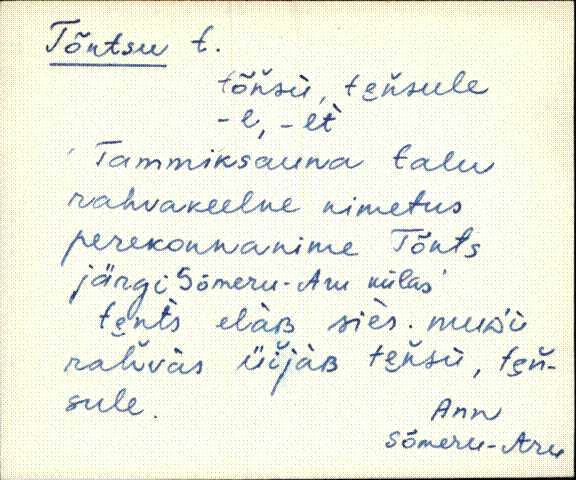 Tõntsu t.
tõňsù, tęňsule
-l, -lt̀
'Tammiksauna talu
rahvakeelne nimetus
perekonnanime Tõnts
järgi Sõmeru-Aru külas'
tęnt̀s elàʙ siès. muʙ̆ù
rahvàs üijàʙ tęňsù, tęň-
sule.
Ann
Sõmeru-Aru